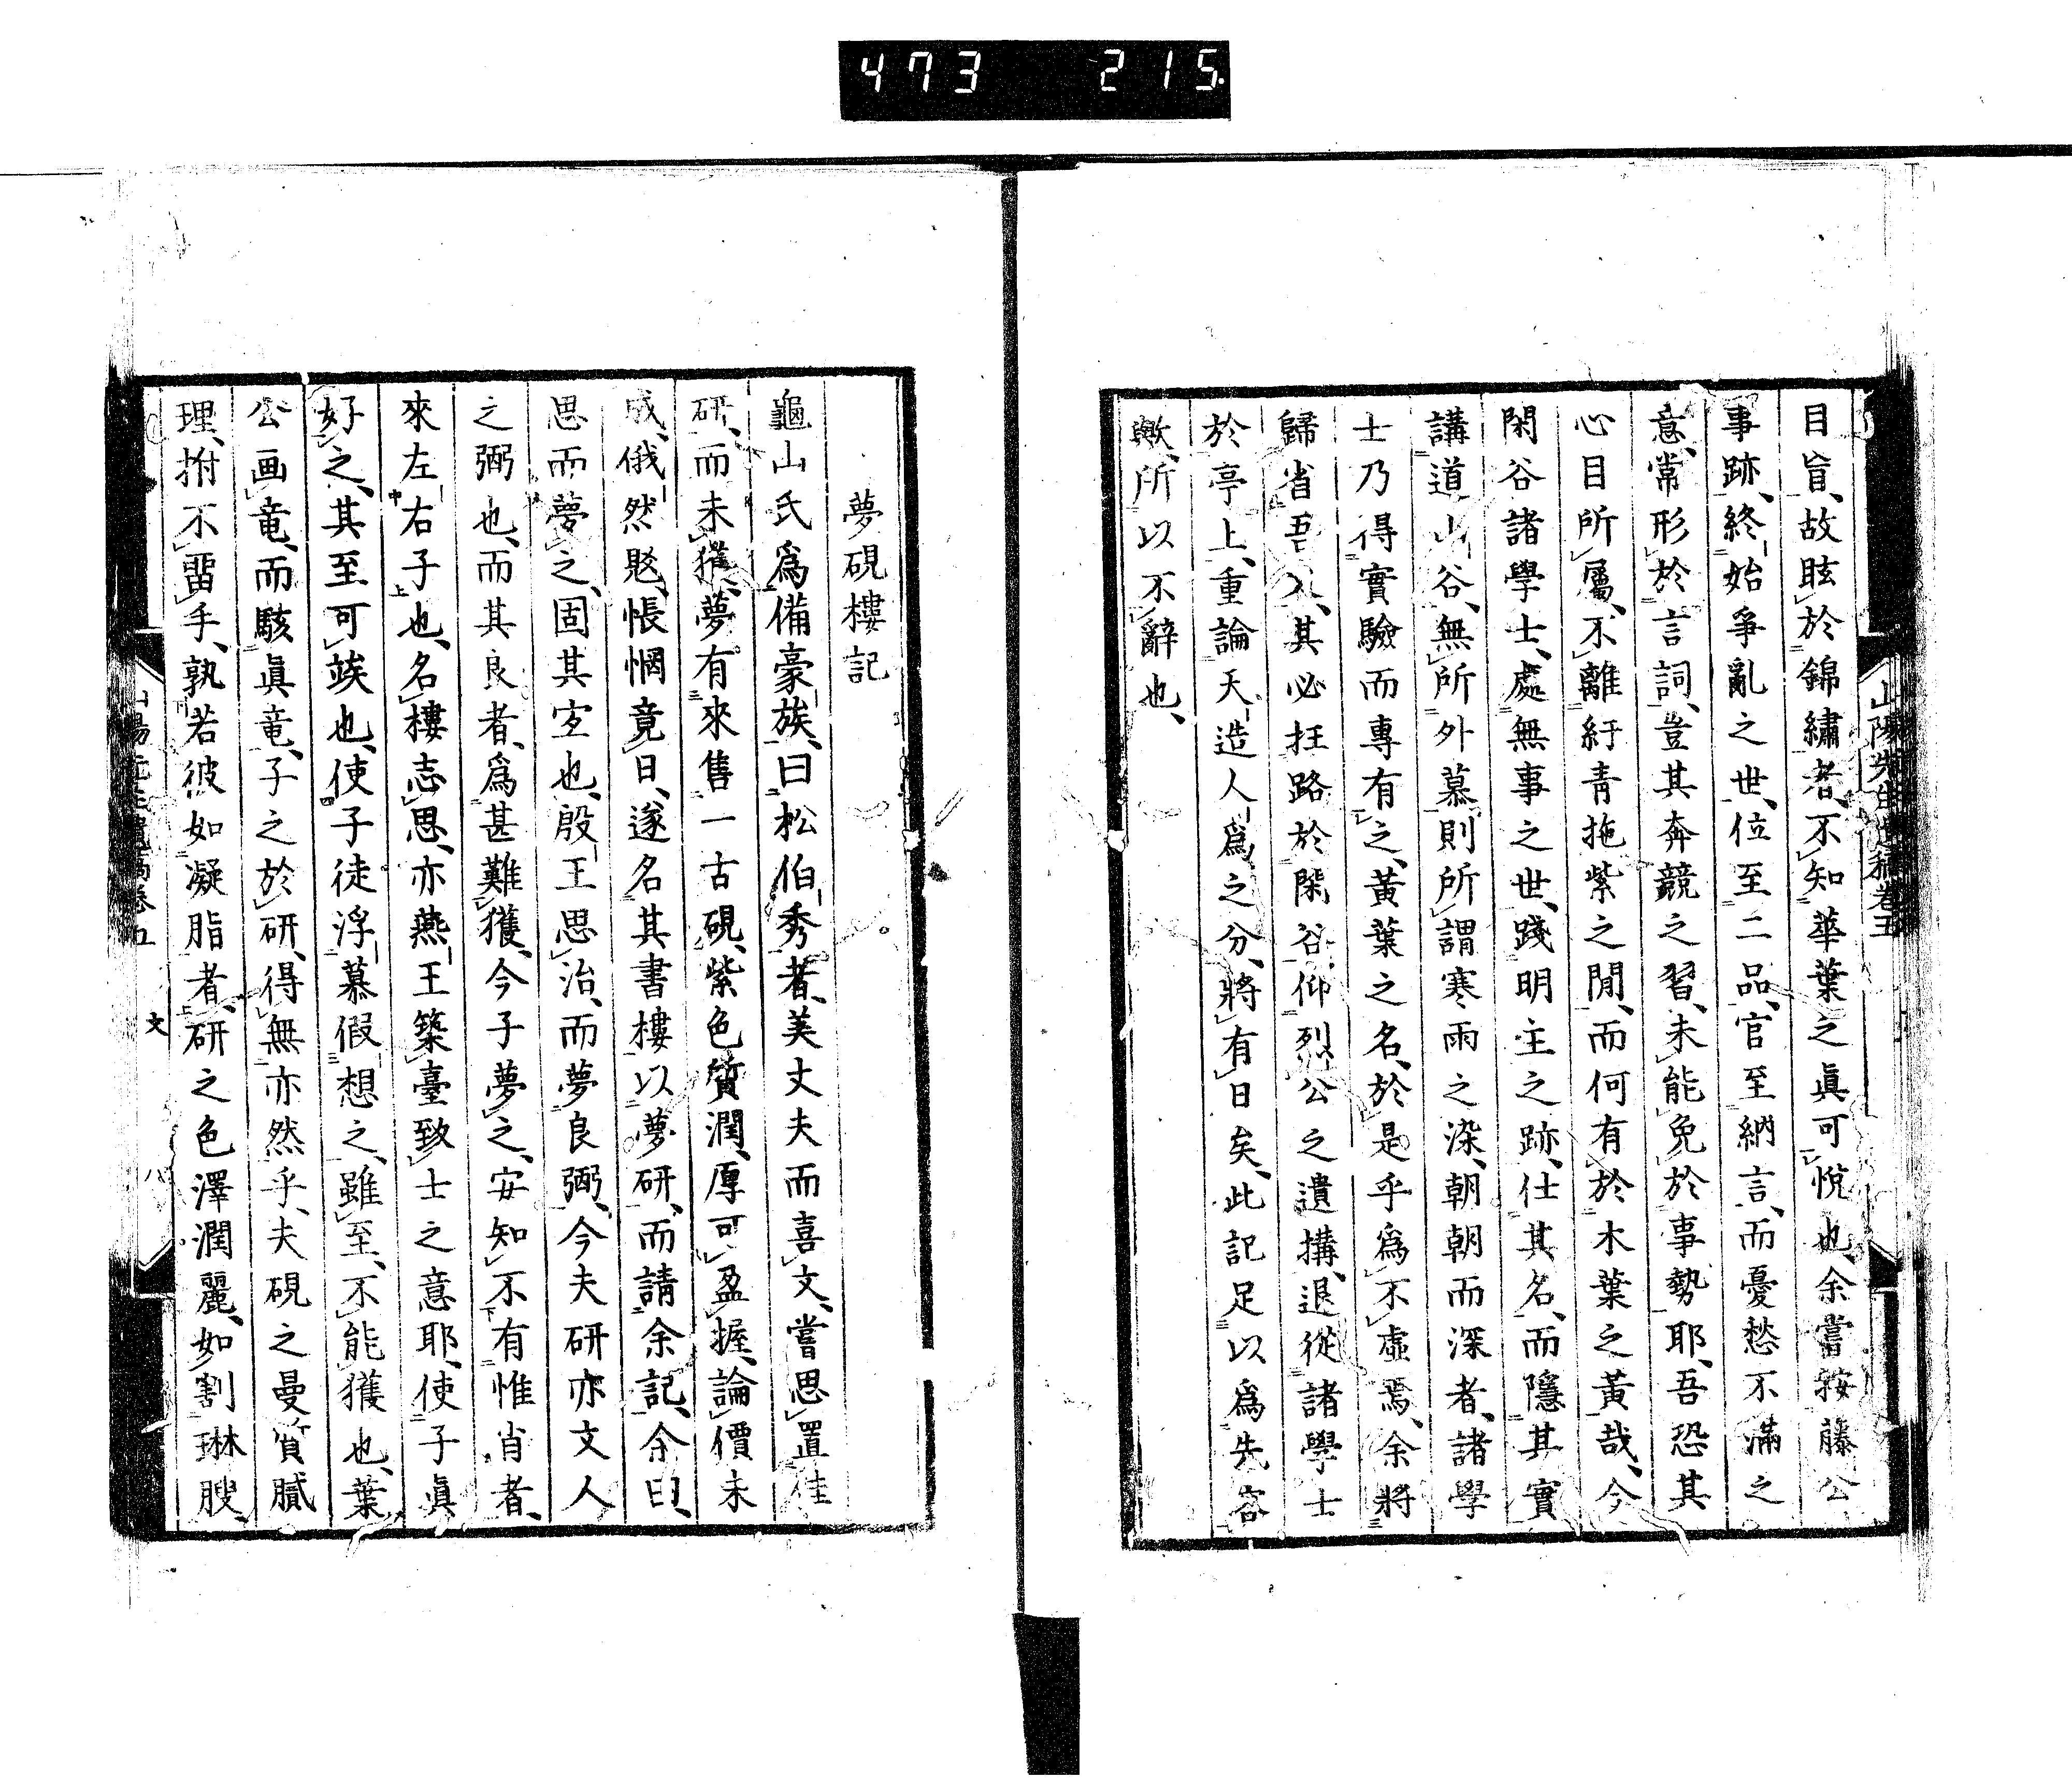 473 215
山陽先生遺稿卷五
目盲、故眩於錦繡者、不知華葉之眞可悅也、余嘗按藤公
事跡、終始爭亂之世、位至二品、官至納言、而憂愁不滿之
意、常形於言詞、豈其奔競之習、未能免於事勢耶、吾恐其
心目所屬、不離紆青拖紫之間、而何有於木葉之黃哉、今
閑谷諸學士、處無事之世、踐明主之跡、仕其名、而隱其實
講道山谷、無所外慕、則所謂寒雨之染、朝朝而深者、諸學
士乃得實驗而專有之、黃葉之名、於是乎爲不虛焉、余將
歸省吾人、其必抂路於閑谷、仰烈公之遺搆、退從諸學士
於亭上、重論天造人爲之分、將有日矣、此記足以爲先容
歟、所以不辭也、
夢硯樓記
龜山氏爲備豪族、曰松伯秀者、美丈夫而喜文、嘗思置佳
研、而未獲、夢有來售一古硯、紫色質潤、厚可盈握、論價未
成、俄然覺、悵惘竟日、遂名其書樓以夢研、而請余記、余曰、
思而夢之、固其宜也、殷王思治、而夢良弼、今夫研亦文人
之弼也、而其良者、爲甚難獲、今子夢之、安知不有惟肖者、
來左右子也、名樓志思、亦燕王築臺致士之意耶、使子眞
好之、其至可竢也、使子徒浮慕假想之、雖至、不能獲也、葉
公画竜、而駭眞竜、子之於研、得無亦然乎、夫硯之曼質膩
理、拊不畱手、孰若彼如凝脂者、研之色澤潤麗、如割琳腴、
山陽先生遺稿卷五 文 八